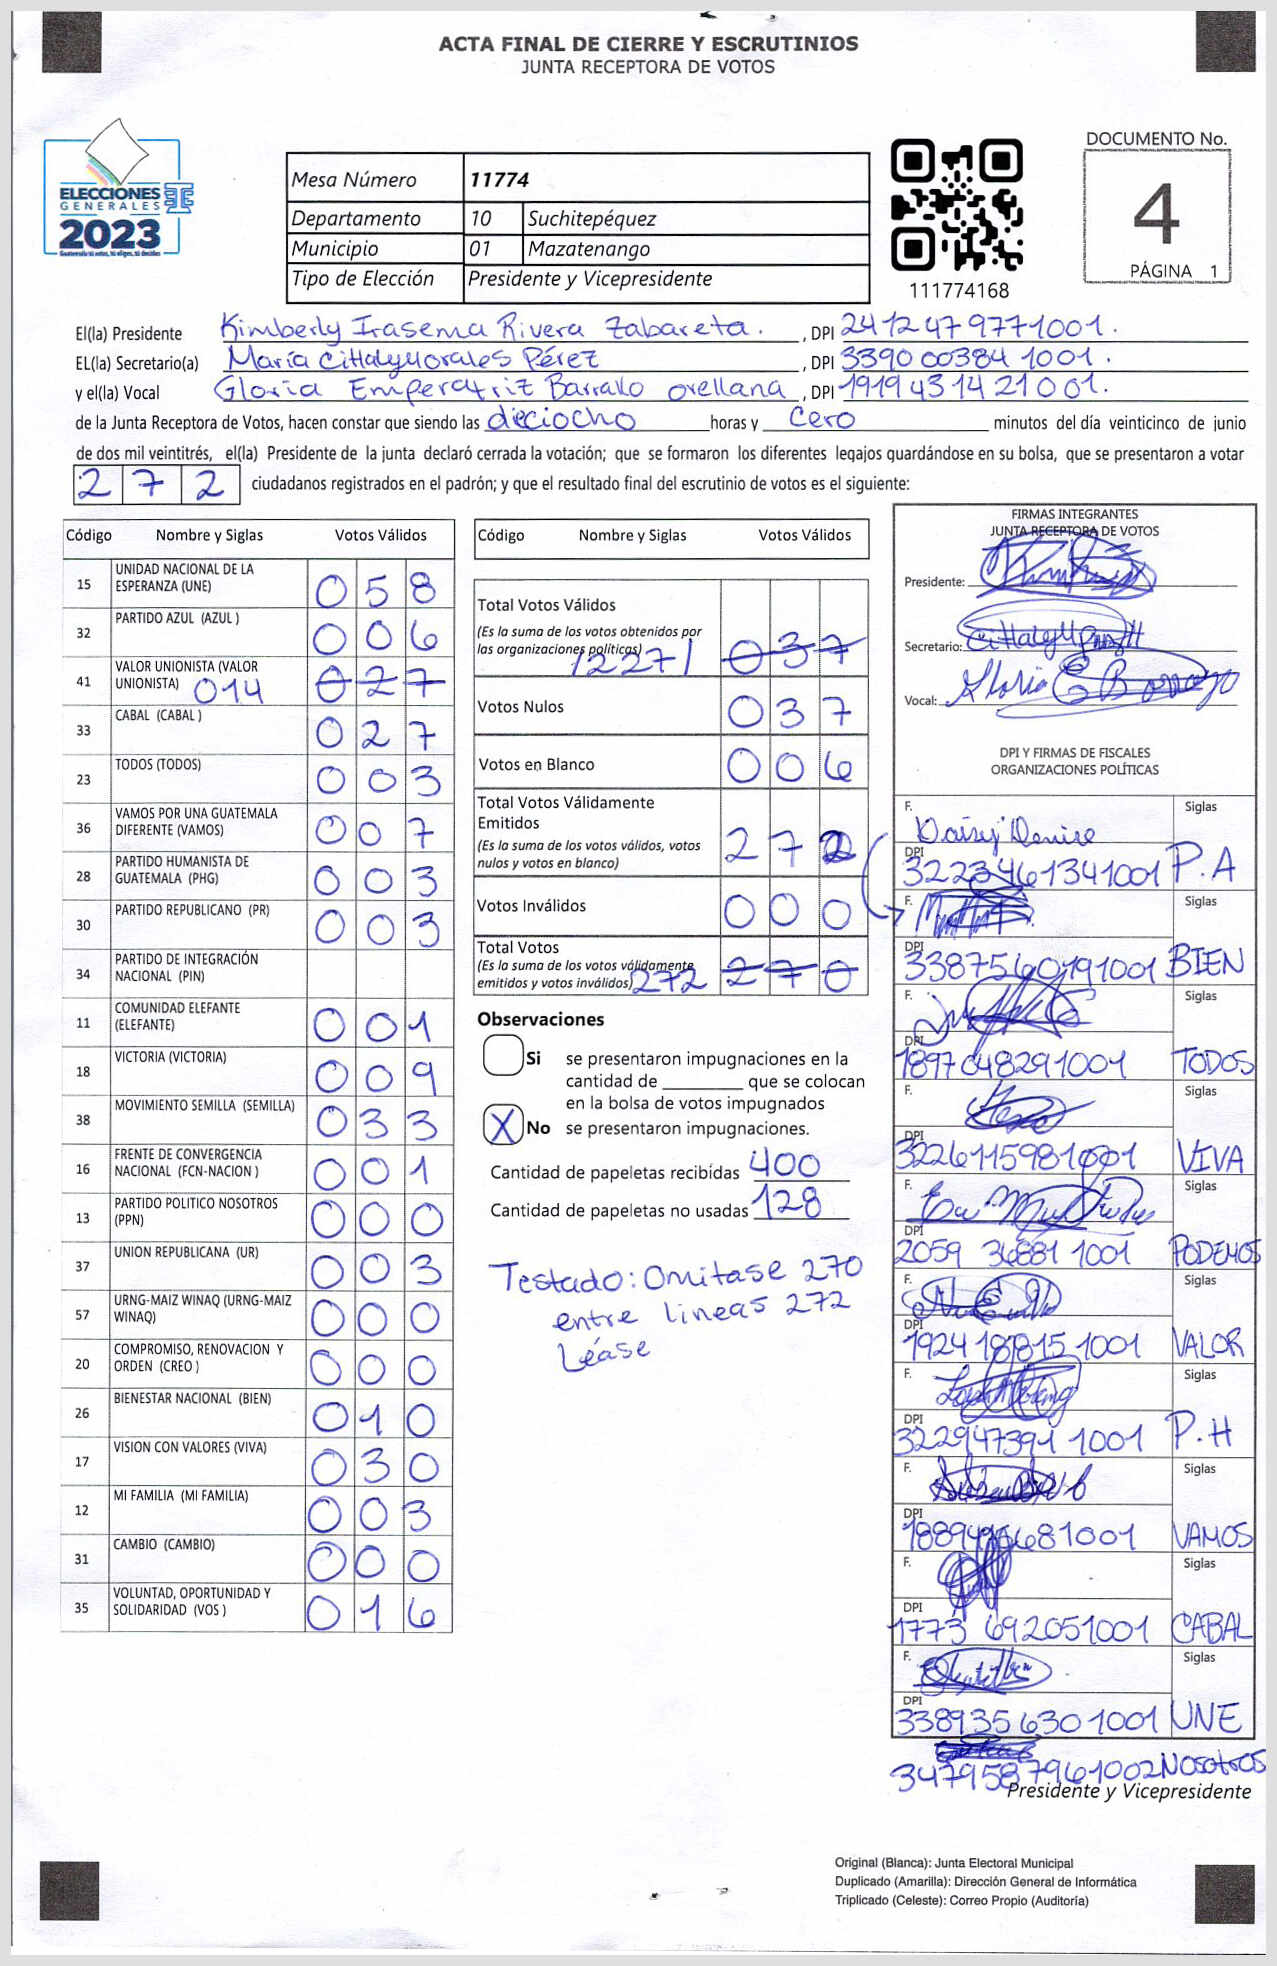 ACTA FINAL DE CIERRE Y ESCRUTINIOS
JUNTA RECEPTORA DE VOTOS
ELECCIONES
GENERALES
2023
Mesa Número 11774
Departamento 10 Suchitepéquez
Municipio 01 Mazatenango
Tipo de Elección Presidente y Vicepresidente
111774168
DOCUMENTO No.
4
PÁGINA 1
El(la) Presidente Kimberly Irasema Rivera Zabareta. , DPI 2412479771001.
EL(la) Secretario(a) María Citlaly Morales Pérez , DPI 3390003841001.
y el(la) Vocal Gloria Emperatriz Barrallo orellana , DPI 1919431421001.
de la Junta Receptora de Votos, hacen constar que siendo las dieciocho horas y cero minutos del día veinticinco de junio
de dos mil veintitrés, el(la) Presidente de la junta declaró cerrada la votación; que se formaron los diferentes legajos guardándose en su bolsa, que se presentaron a votar
272 ciudadanos registrados en el padrón; y que el resultado final del escrutinio de votos es el siguiente:
Código Nombre y Siglas Votos Válidos
15 UNIDAD NACIONAL DE LA ESPERANZA (UNE) 058
32 PARTIDO AZUL (AZUL ) 006
41 VALOR UNIONISTA (VALOR UNIONISTA) 014 027
33 CABAL (CABAL ) 027
23 TODOS (TODOS) 003
36 VAMOS POR UNA GUATEMALA DIFERENTE (VAMOS) 007
28 PARTIDO HUMANISTA DE GUATEMALA (PHG) 003
30 PARTIDO REPUBLICANO (PR) 003
34 PARTIDO DE INTEGRACIÓN NACIONAL (PIN)
11 COMUNIDAD ELEFANTE (ELEFANTE) 001
18 VICTORIA (VICTORIA) 009
38 MOVIMIENTO SEMILLA (SEMILLA) 033
16 FRENTE DE CONVERGENCIA NACIONAL (FCN-NACION ) 001
13 PARTIDO POLITICO NOSOTROS (PPN) 000
37 UNION REPUBLICANA (UR) 003
57 URNG-MAIZ WINAQ (URNG-MAIZ WINAQ) 000
20 COMPROMISO, RENOVACION Y ORDEN (CREO ) 000
26 BIENESTAR NACIONAL (BIEN) 010
17 VISION CON VALORES (VIVA) 030
12 MI FAMILIA (MI FAMILIA) 003
31 CAMBIO (CAMBIO) 000
35 VOLUNTAD, OPORTUNIDAD Y SOLIDARIDAD (VOS ) 016
Código Nombre y Siglas Votos Válidos
Total Votos Válidos
(Es la suma de los votos obtenidos por
las organizaciones políticas) 037
Votos Nulos 037
Votos en Blanco 006
Total Votos Válidamente
Emitidos
(Es la suma de los votos válidos, votos
nulos y votos en blanco) 272
Votos Inválidos 000
Total Votos
(Es la suma de los votos válidamente
emitidos y votos inválidos) 272 270
Observaciones
Si se presentaron impugnaciones en la
cantidad de ________ que se colocan
en la bolsa de votos impugnados
X No se presentaron impugnaciones.
Cantidad de papeletas recibídas 400
Cantidad de papeletas no usadas 128
Testado: Omitase 270
entre lineas 272
Léase
FIRMAS INTEGRANTES
JUNTA RECEPTORA DE VOTOS
Presidente:
Secretario:
Vocal:
DPI Y FIRMAS DE FISCALES
ORGANIZACIONES POLÍTICAS
F. Siglas
DPI 3223461341001 P.A
F. Siglas
DPI 3387560191001 BIEN
F. Siglas
DPI 1897048291001 TODOS
F. Siglas
DPI 3226115981001 VIVA
F. Siglas
DPI 2059 36881 1001 PODEMOS
F. Siglas
DPI 1924188151001 VALOR
F. Siglas
DPI 3229473911001 P.H
F. Siglas
DPI VAMOS
F. Siglas
DPI 1773 692051001 CABAL
F. Siglas
DPI 3389356301001 UNE
3479587961002 NOSOTROS
Presidente y Vicepresidente
Original (Blanca): Junta Electoral Municipal
Duplicado (Amarilla): Dirección General de Informática
Triplicado (Celeste): Correo Propio (Auditoría)